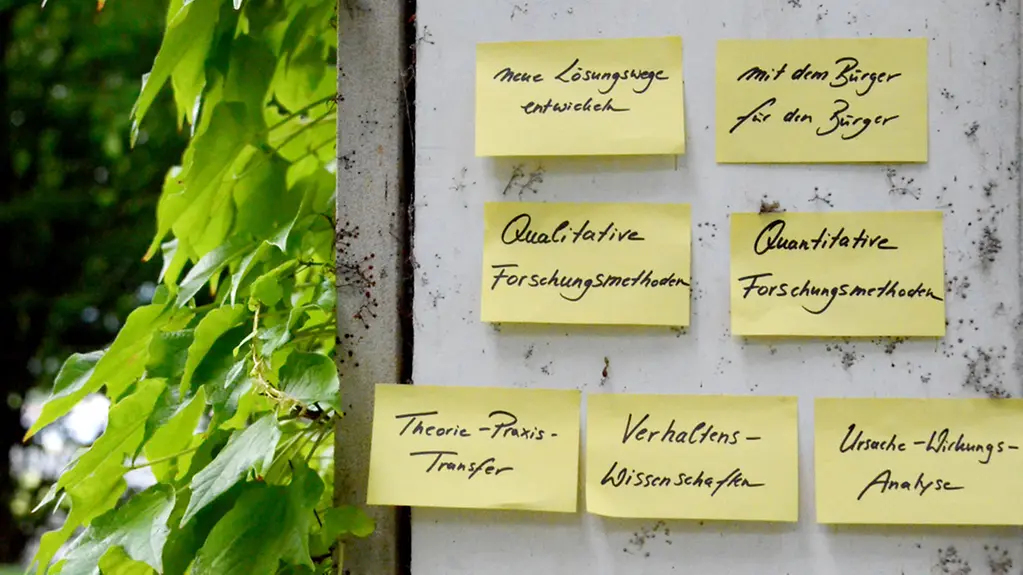 neue Lösungswege
entwickeln
mit dem Bürger
für den Bürger
Qualitative
Forschungsmethoden
Quantitative
Forschungsmethoden
Theorie-Praxis-
Transfer
Verhaltens-
Wissenschaften
Ursache-Wirkungs-
Analyse